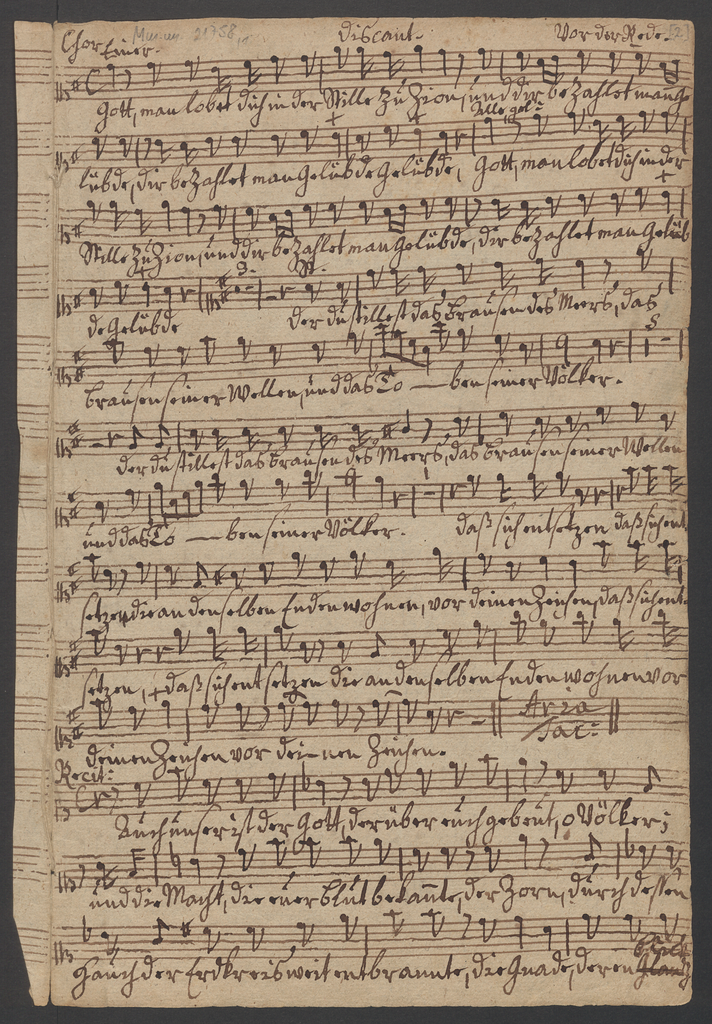 Mus. ms. 21758,
Discant. Vor der Rede. [2]
Chor Einer.
Gott, man lobet dich in der Stille zu Zion, und dir bezahlet man Ge
Alle
lübde, dir bezahlet man Gelübde Gelübde, Gott, man lobet dich in der
Stille zu Zion, und dir bezahlet man Gelübde, dir bezahlet man Gelüb
3.
de Gelübde der du stillest das Brausen des Meers, das
3
Brausen seiner Wellen, und das To — ben seiner Völker.
der du stillest das Brausen des Meers, das Brausen seiner Wellen
und das To — ben seiner Völker. daß sich entsetzen daß sich ent
setzen, die an denselben Enden wohnen, vor deinen Zeichen, daß sich ent-
setzen, daß sich entsetzen die an denselben Enden wohnen vor
Aria
Tac:
deinen Zeichen vor dei-nen Zeichen.
Recit:
Auch unser ist der Gott, der über euch gebeut, o Völker;
und die Macht, die euer Blut bekante, der Zorn, durch dessen
Hauch der Erdkreis weit entbrannte, die Gnade, deren